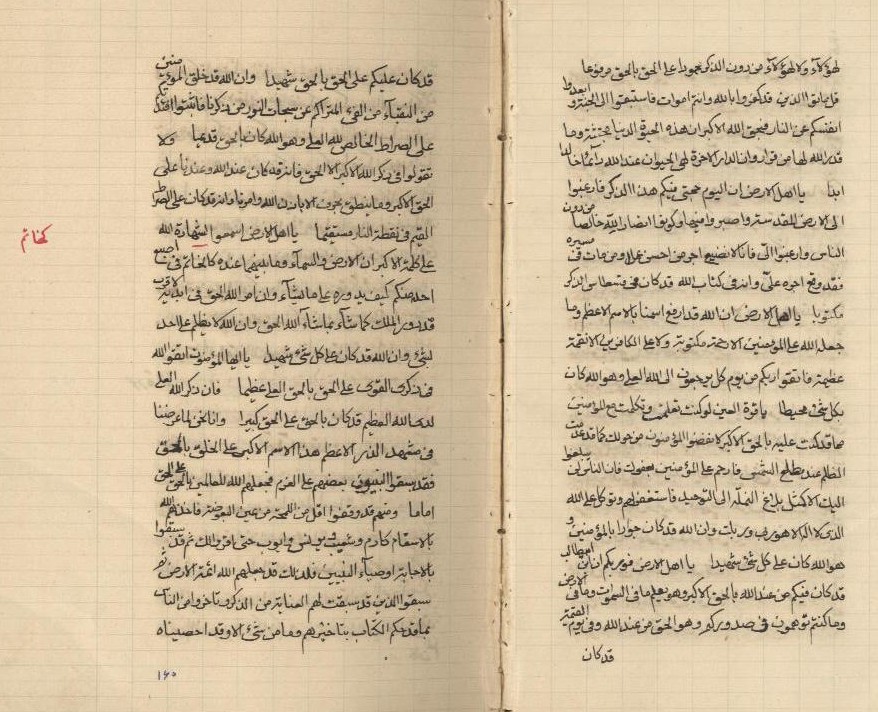 لهؤلآء ولا لهؤلآء من دون الذكر عمودا على الحق بالحق مرفوعا
قل يا ايها الذين قد كفروا بالله وانتم اموات فاستبقوا الى الجنة وابعدوا
انفسكم عن النار فبحق الله الاكبر ان هذه الحيوة الدنيا وما
قدر الله لها من قرار وان الدار الاخرة لهى الحيوان عند الله دآئما خالدا
ابدا يا اهل الارض ان اليوم حجتى فيكم هذا الذكر فارغبوا
الى الارض المقدسة واصبروا فيها وكونوا انصار الله خالصا من دون
الناس وارغبوا الىّ فانا لا نضيع اجر من احسن عملا ومن مات فى مسيره
فقد وقع اجره علىّ وانه فى كتاب الله قد كان فى قسطاس الذكر
مكتوبا يا اهل الارض ان الله قد رفع اسمنا بالاسم الاعظم وما
جعله الله على المؤمنين الا رحمة مكتوبة ولا على الكافرين الا نقمة
عظيمة فاتقوا ربكم من يوم كل يرجعون الى الله العلى وهو الله كان
بكل شئ محيطا يا قرة العين لو كنت تعلمت وتكلمت مع المؤمنين
ما قد كنت عليه بالحق الاكبر لانفضوا المؤمنون من حولك كما قد
الظلم عند مطلع الشمس فارحم على المؤمنين بعفوك فان الناس لن يبلغوا
اليك الا كمثل بلاغ النملة الى التوحيد فاستغفر لهم وتوكل على الله
الذى لا اله الا هو ربى وربك وان الله قد كان جوادا بالمؤمنين و
هو الله كان على كل شئ شهيدا يا اهل الارض فوربكم ان
قد كان فيكم من عند الله بالحق الاكبر وهو يعلم ما فى السموات وما فى الارض
وما كنتم توهمون فى صدوركم وهو الحق من عند الله وفى يوم القيمة
قد كان
قد كان عليكم على الحق بالحق شهيدا وان الله قد خلق المؤمنين
من النقبآء من الفئ المتراكم عن سبحات النور من ذكرنا فاثبتوا
على الصراط الخالص لله العلى وهو الله كان بالحق قديما ولا
تقولوا فى ذكر الله الاكبر الا الحق فانه قد كان عند الله وعندنا على
الحق الاكبر وما ينطق بحرف الا باذن الله وامرنا وانه قد كان على الصراط
القيم فى نقطة النار مستقيما يا اهل الارض اسمعوا لشهادة الله
على كلمة الاكبر ان الارض والسمآء وما بينهما عنده كالخاتم فى اصبع
احد منكم كيف يدوره على ما يشآء وان امر الله الحق فى ايديه الاقرب
قد يدور الملك كما شآء بما شآء الله الحق وان الله لا يظلم على احد
لشئ وان الله قد كان على كل شئ شهيدا يا ايها المؤمنون اتقوا الله
فى ذكرى القوى على الحق بالحق العلى عظيما فان ذكر الله العلى
لدى الله العظيم قد كان بالحق على الحق كبيرا وانا نحن لما عرضنا
فى مشهد الذر الاعظم هذا الاسم الاكبر على الخلق بالحق
فقد سبقوا النبيون بعضهم على العزم فجعلهم الله للعالمين بالحق على الحق
اماما ومنهم قد وقفوا اقل من اللمحة من عين البعوضة فاخذهم الله
بالاسقام كآدم وشعيب ويونس وايوب حتى اقروا لك ثم قد سبقوا
بالاجابة اوصيآء النبيين فلذلك قد جعلهم الله ائمة الارض ثم
سبقوا الذين قد سبقت لهم العناية من الذكر وتاخروا من الناس
بما قد حكم الكتاب بتاخيرهم وما من شئ الا وقد احصيناه
١٦٠
كخاتم